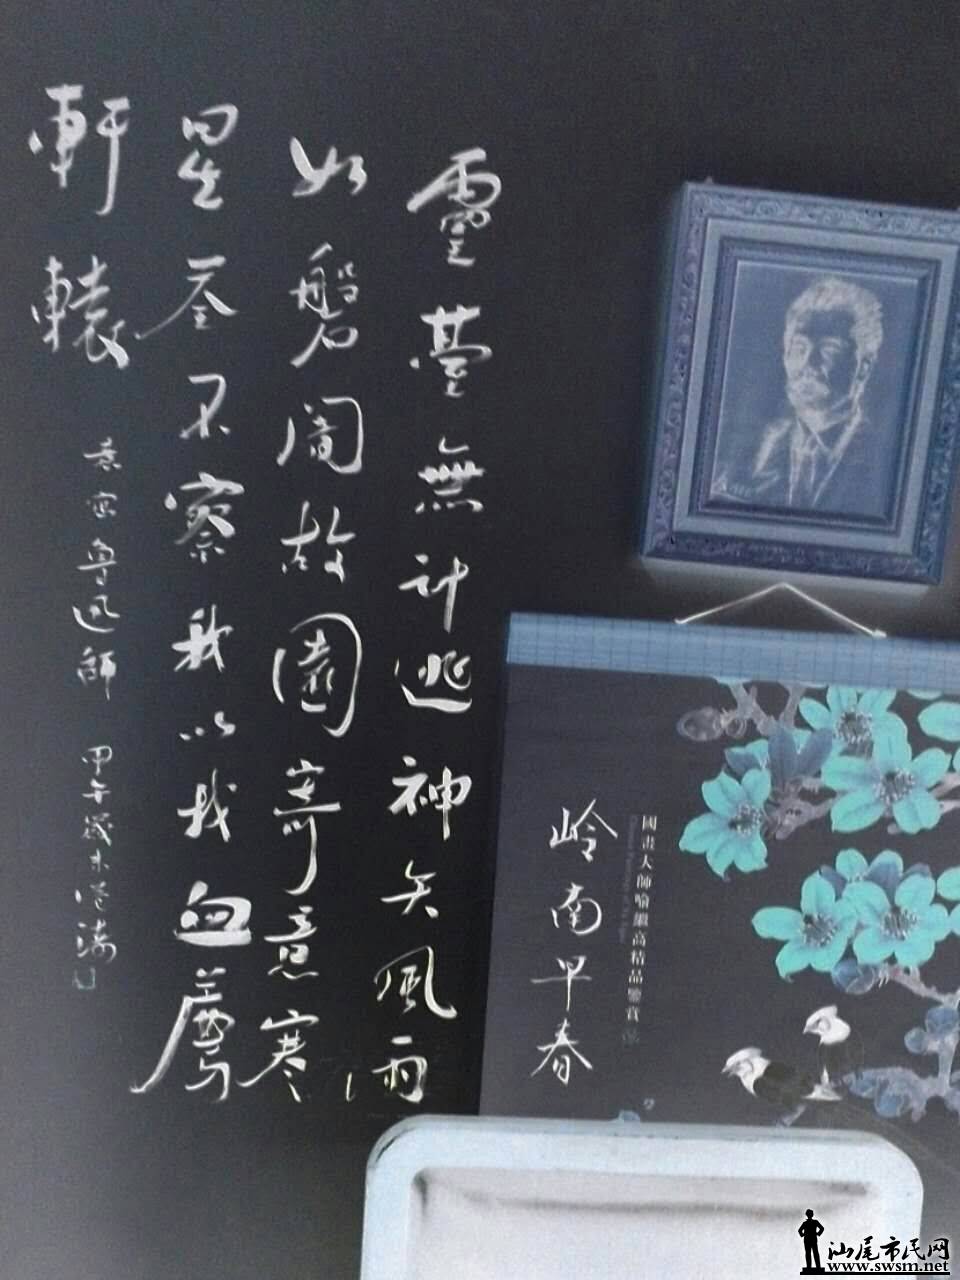 靈臺無計逃神矢風雨
如磐闇故園寄意寒
星荃不察我以我血薦
軒轅
魯迅師 甲午歲末
國畫大師喻繼高精品鑒賞
岭南早春
汕尾市民网
www.swsm.net